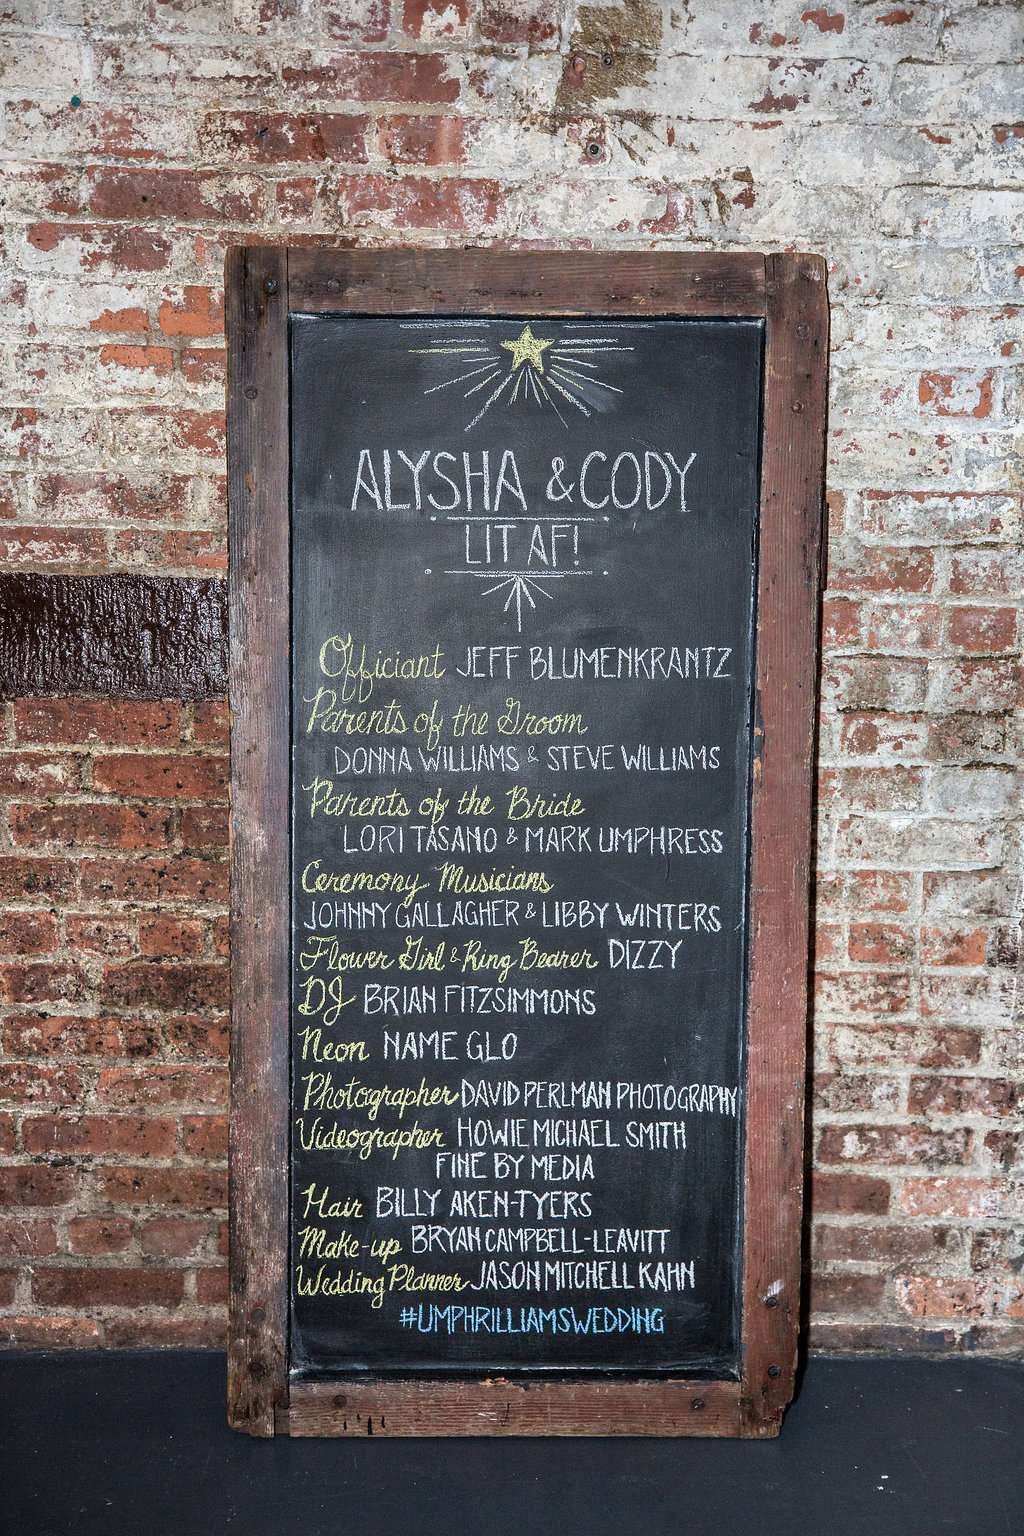 ALYSHA & CODY
LIT AF!
Officiant JEFF BLUMENKRANTZ
Parents of the Groom
DONNA WILLIAMS & STEVE WILLIAMS
Parents of the Bride
LORI TASANO & MARK UMPHRESS
Ceremony Musicians
JOHNNY GALLAGHER & LIBBY WINTERS
Flower Girl & Ring Bearer DIZZY
DJ BRIAN FITZSIMMONS
Neon NAME GLO
Photographer DAVID PERLMAN PHOTOGRAPHY
Videographer HOWIE MICHAEL SMITH
FINE BY MEDIA
Hair BILLY AKEN-TYERS
Make-up BRYAN CAMPBELL-LEAVITT
Wedding Planner JASON MITCHELL KAHN
#UMPHRILLIAMSWEDDING